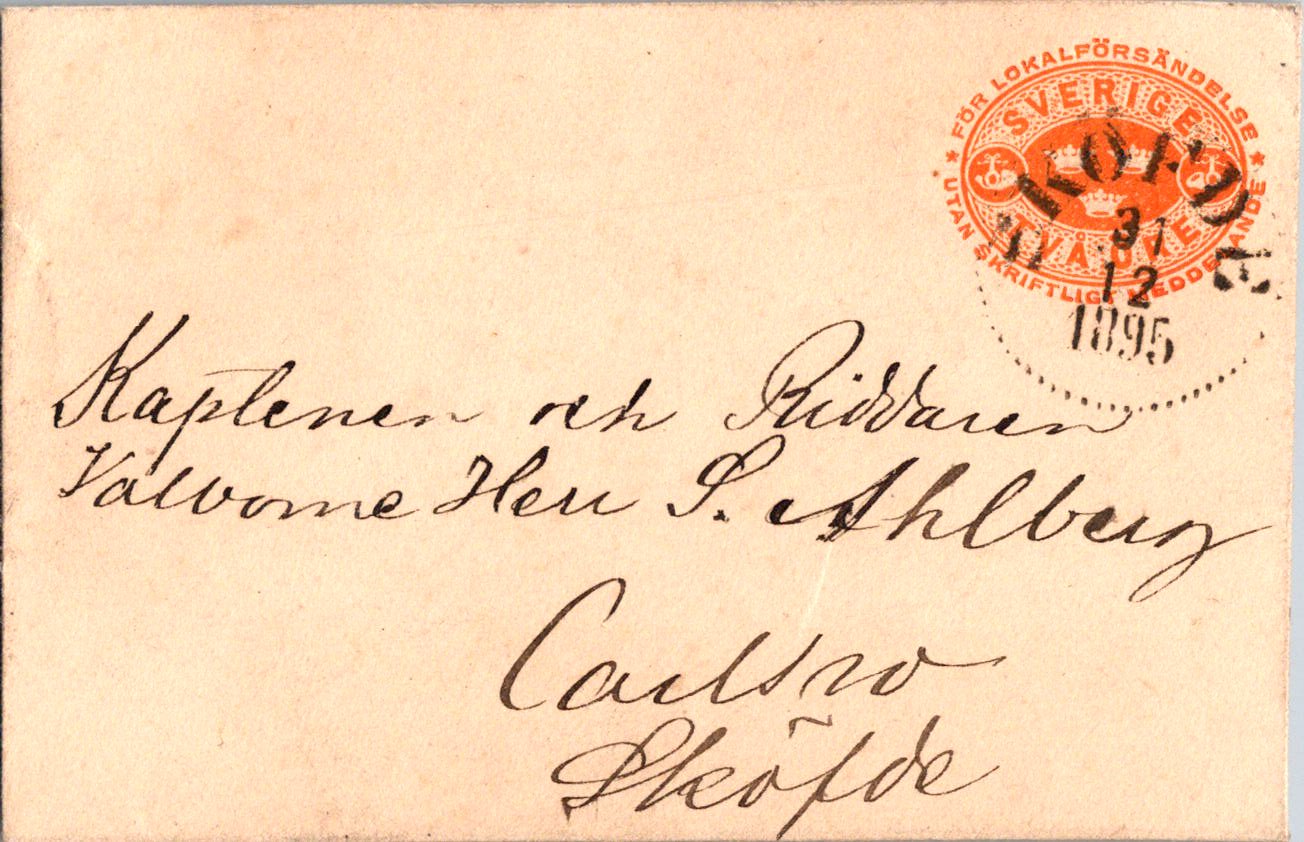 ★ FÖR LOKALFÖRSÄNDELSE ★
SVERIGE
TVÅ ÖRE
UTAN SKRIFTLIGT MEDDELANDE
SKÖFDE
31
12
1895
Kaptenen och Riddaren
Välborne Herr S. Ahlberg
Carlsro
Sköfde